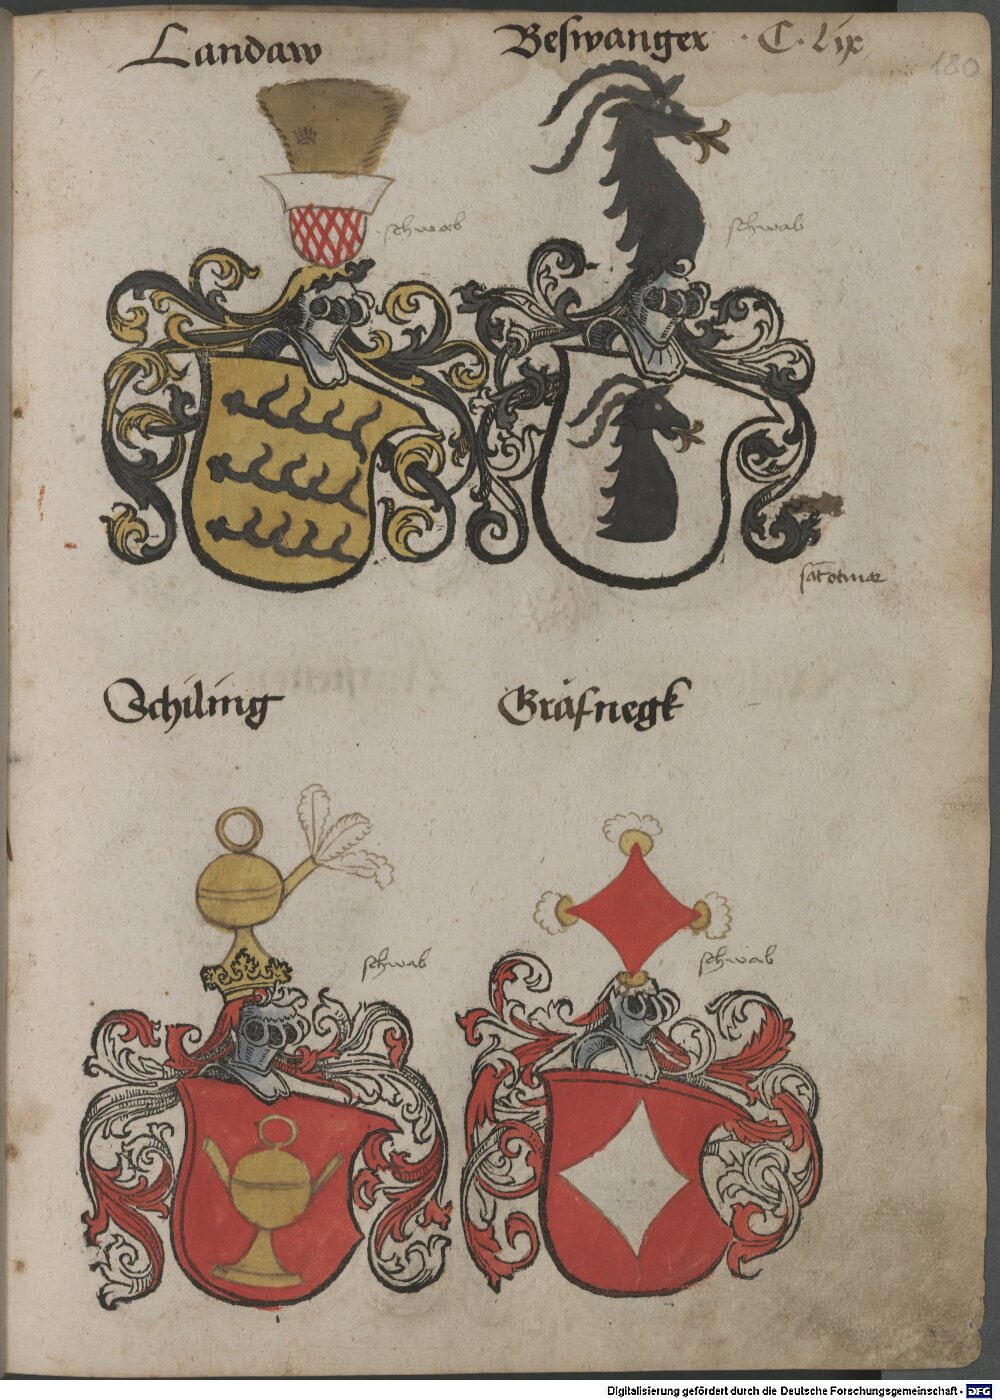 Landaw
Beswanger · C · Lix
180
schwab
schwab
Schiling
Gräfnegk
schwab
schwab
Digitalisierung gefördert durch die Deutsche Forschungsgemeinschaft - DFG